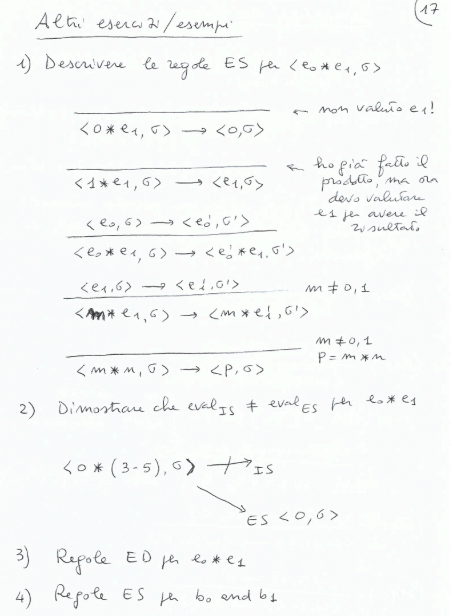 17
Altri esercizi/esempi
1) Descrivere le regole ES per <e0 * e1, σ>
<0 * e1, σ> → <0, σ> ← non valuto e1!
<1 * e1, σ> → <e1, σ> ← ho già fatto il
prodotto, ma ora
devo valutare
e1 per avere il
risultato
<e0, σ> → <e0', σ'>
<e0 * e1, σ> → <e0' * e1, σ'>
<e1, σ> → <e1', σ'> m ≠ 0, 1
<m * e1, σ> → <m * e1', σ'>
m ≠ 0, 1
<m * n, σ> → <p, σ> P = m * n
2) Dimostrare che eval IS ≠ eval ES per e0 * e1
<0 * (3-5), σ> ↛ IS
ES <0, σ>
3) Regole ED per e0 * e1
4) Regole ES per b0 and b1